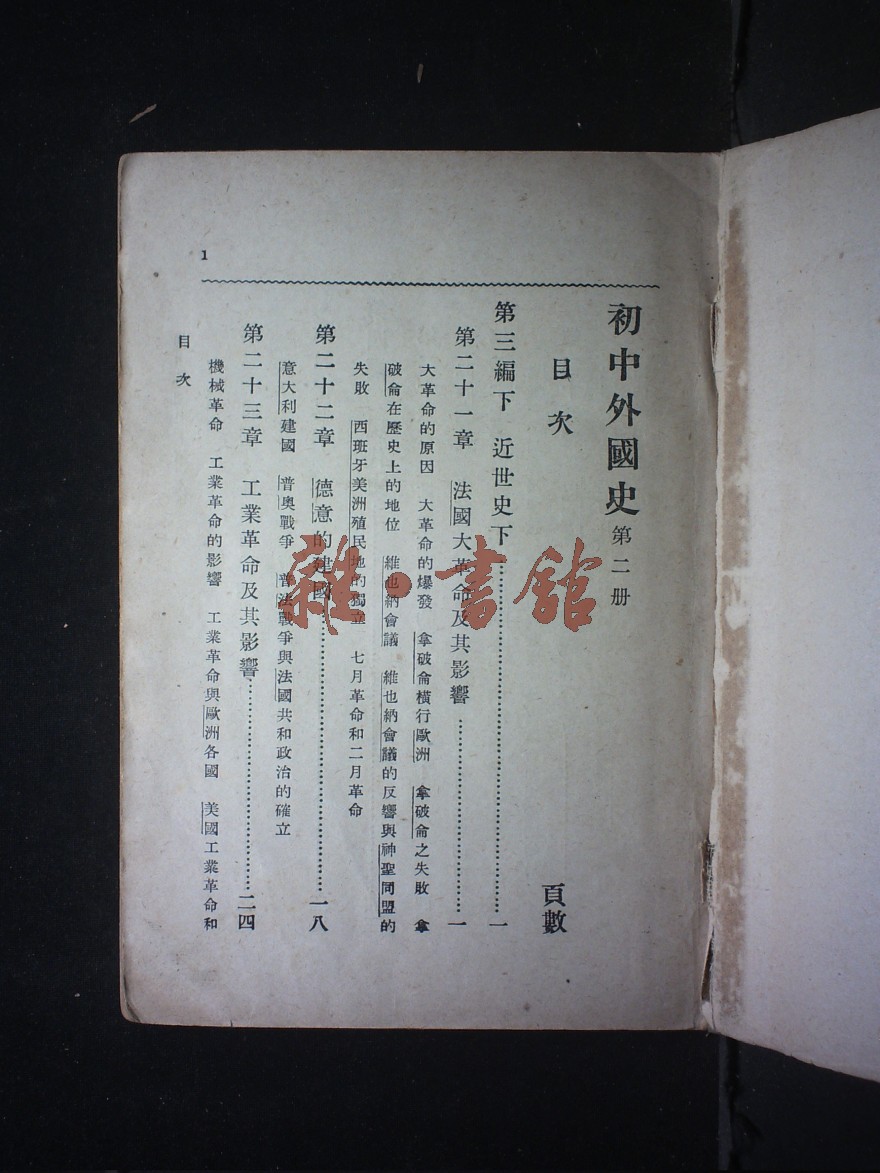 初中外國史 第二册
目次 頁數
第三編下 近世史下……………………一
第二十一章 法國大革命及其影響……………………一
大革命的原因 大革命的爆發 拿破侖橫行歐洲 拿破侖之失敗 拿
破侖在歷史上的地位 維也納會議 維也納會議的反響與神聖同盟的
失敗 西班牙美洲殖民地的獨立 七月革命和二月革命
第二十二章 德意的建國……………………一八
意大利建國 普奧戰爭 普法戰爭與法國共和政治的確立
第二十三章 工業革命及其影響……………………二四
機械革命 工業革命的影響 工業革命與歐洲各國 美國工業革命和
目次
1
雜·書館